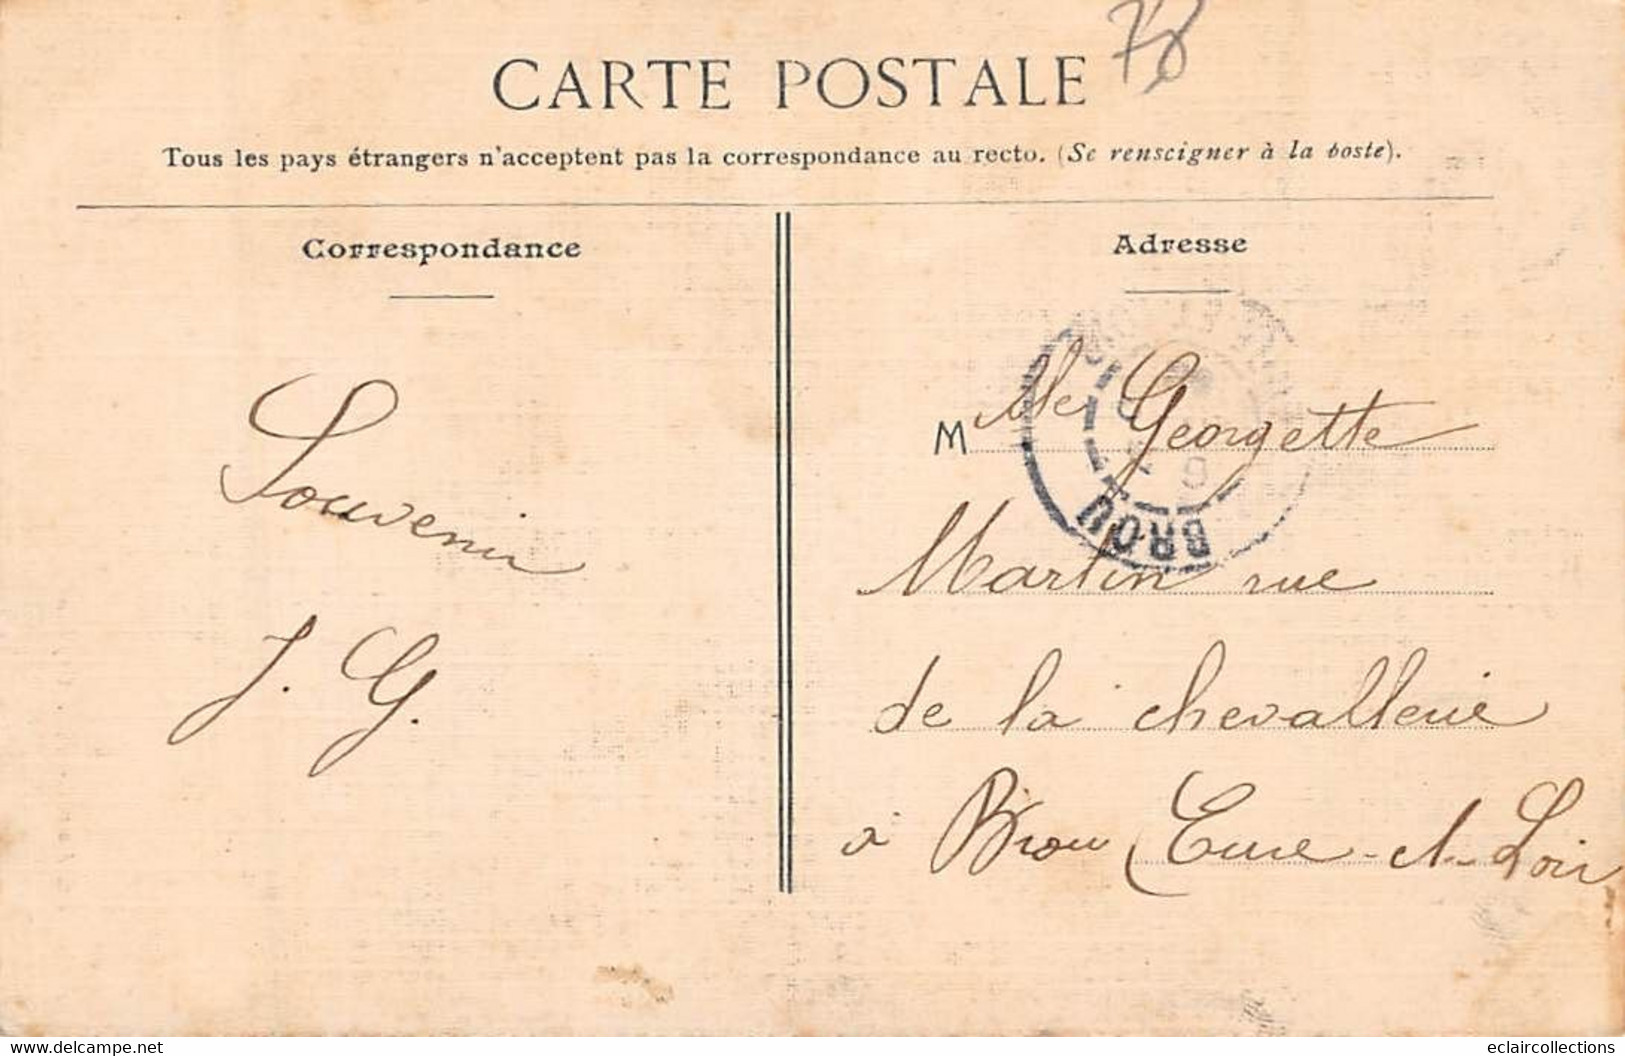 78
CARTE POSTALE
Tous les pays étrangers n'acceptent pas la correspondance au recto. (Se renseigner à la poste).
Correspondance
Adresse
Souvenir
J. G.
M lle Georgette
Martin rue
de la chevallerie
à Brou (Eure-et-Loir
BROU
www.delcampe.net
eclaircollections